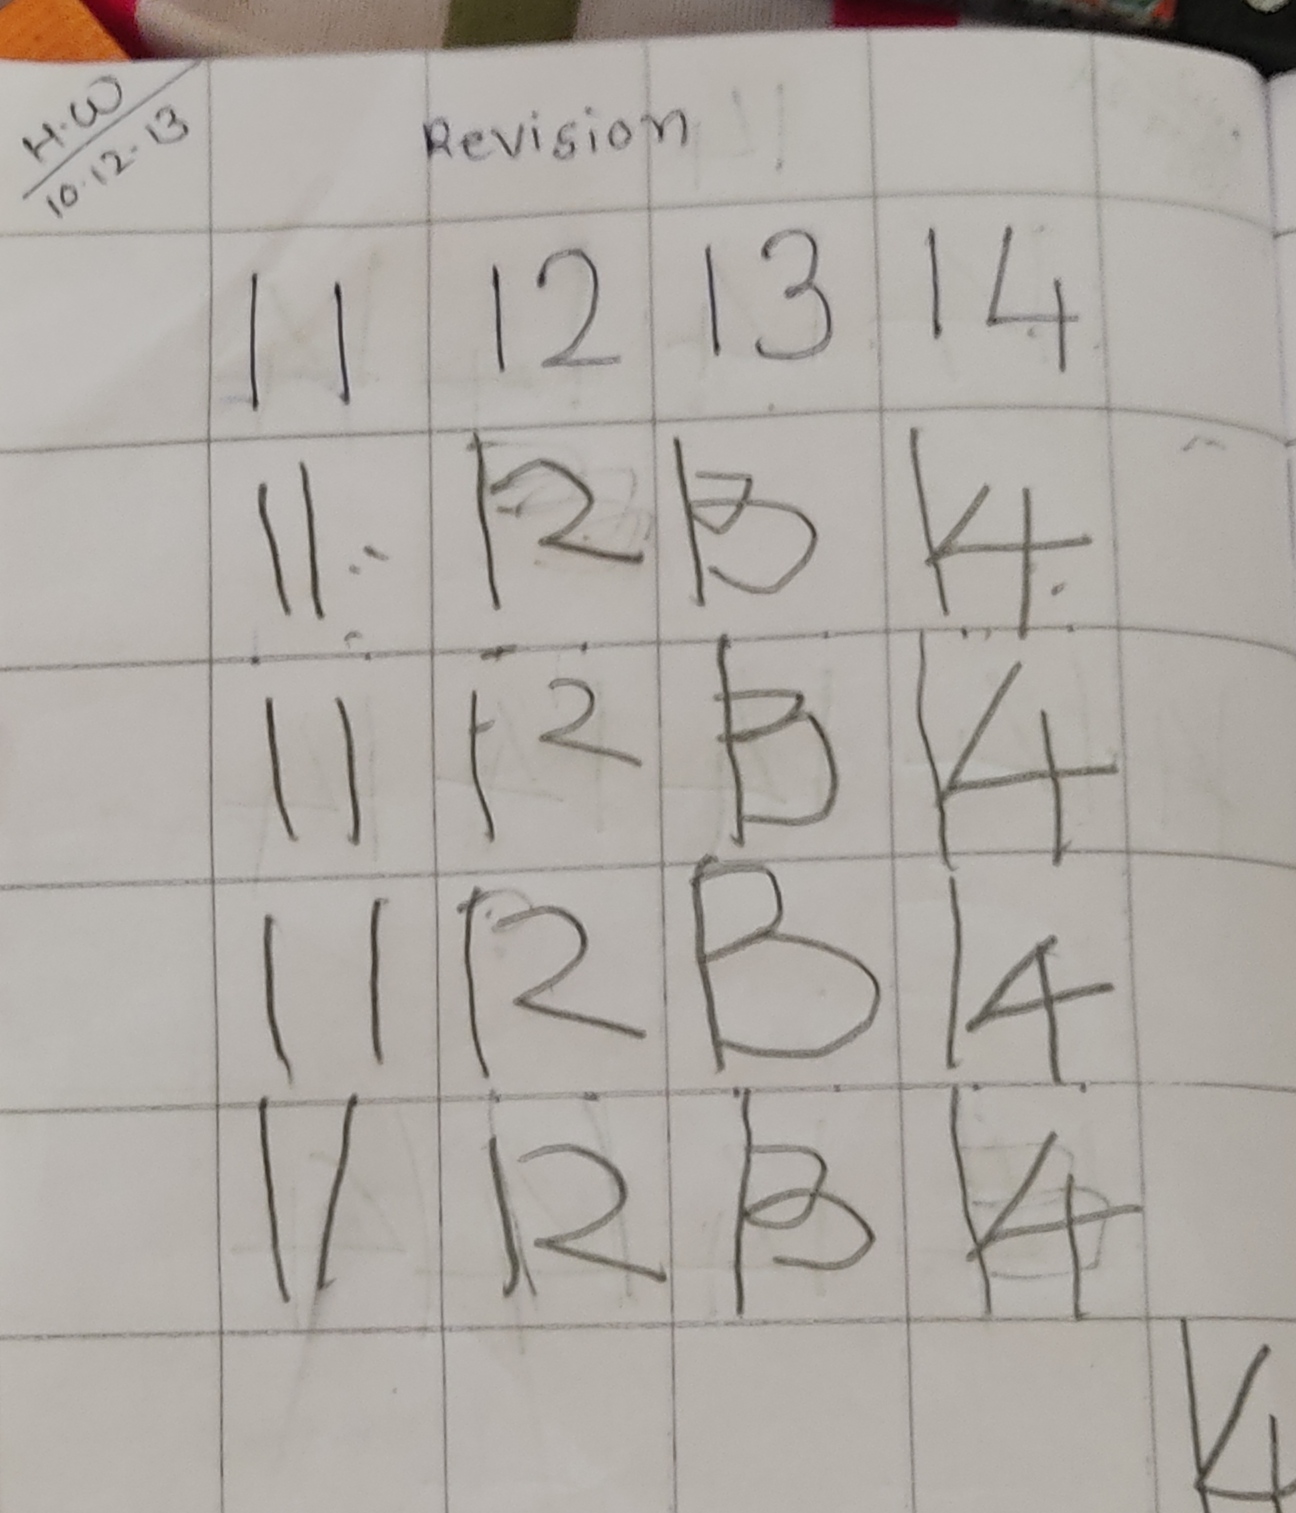 H.W
10.12.13
Revision
11 12 13 14
11 12 13 14
11 12 13 14
11 12 13 14
11 12 13 14
14